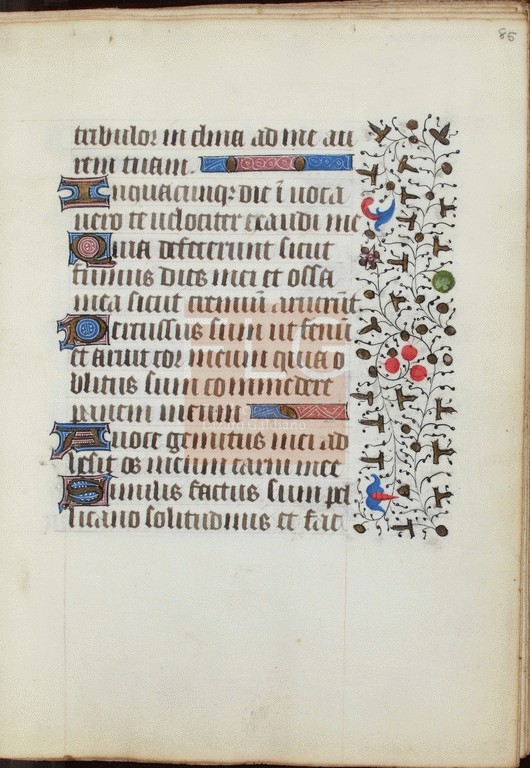 85
tribulor inclina ad me au
rem tuam.
Inquacunq; die ī uoca
uero te uelociter exaudi me
Quia defecerunt sicut
fumus dies mei et ossa
mea sicut cremiū aruerūt
Percussus sum ut fenū
et aruit cor meum quia o
blitus sum commedere
panem meum
Auoce gemitus mei ad
hesit os meum carni mee
Similis factus sum pel
licano solitudinis et fac
FLG
Lázaro Galdiano